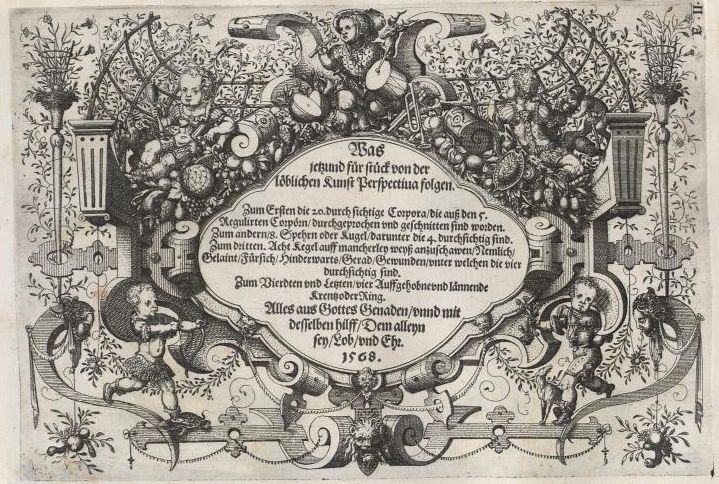 E. II.
Was
jetzund für stück von der
löblichen Kunst Perspectiua folgen.
Zum Ersten die 20. durch sichtige Corpora/die auß den 5.
Regulirten Corpörn/durchgeprochen vnd geschnitten sind worden.
Zum andern/8. Sphern oder Kugel/darunter die 4. durchsichtig sind.
Zum dritten. Acht Kegel auff mancherley weyß anzuschawen/Nemlich/
Gelaint/Fürsich/Hinderwarts/Gerad/Gewunden/vnter welchen die vier
durchsichtig sind.
Zum Vierdten vnd Letzten/vier Auffgehobne vnd lännende
Krentz oder Ring.
Alles aus Gottes Genaden/vnnd mit
desselben hilff/Dem alleyn
sey/Lob/vnd Ehr.
1568.